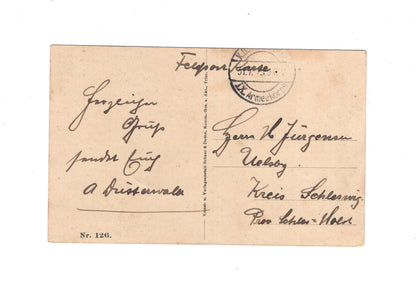 Feldpost Karte
IX. Armeekorps
Herzlichen
Gruß
sendet Euch
A Düsterwald
Herrn H Jürgensen
Uelsby
Kreis Schleswig
Prov Schles-Holst
Nr. 126.